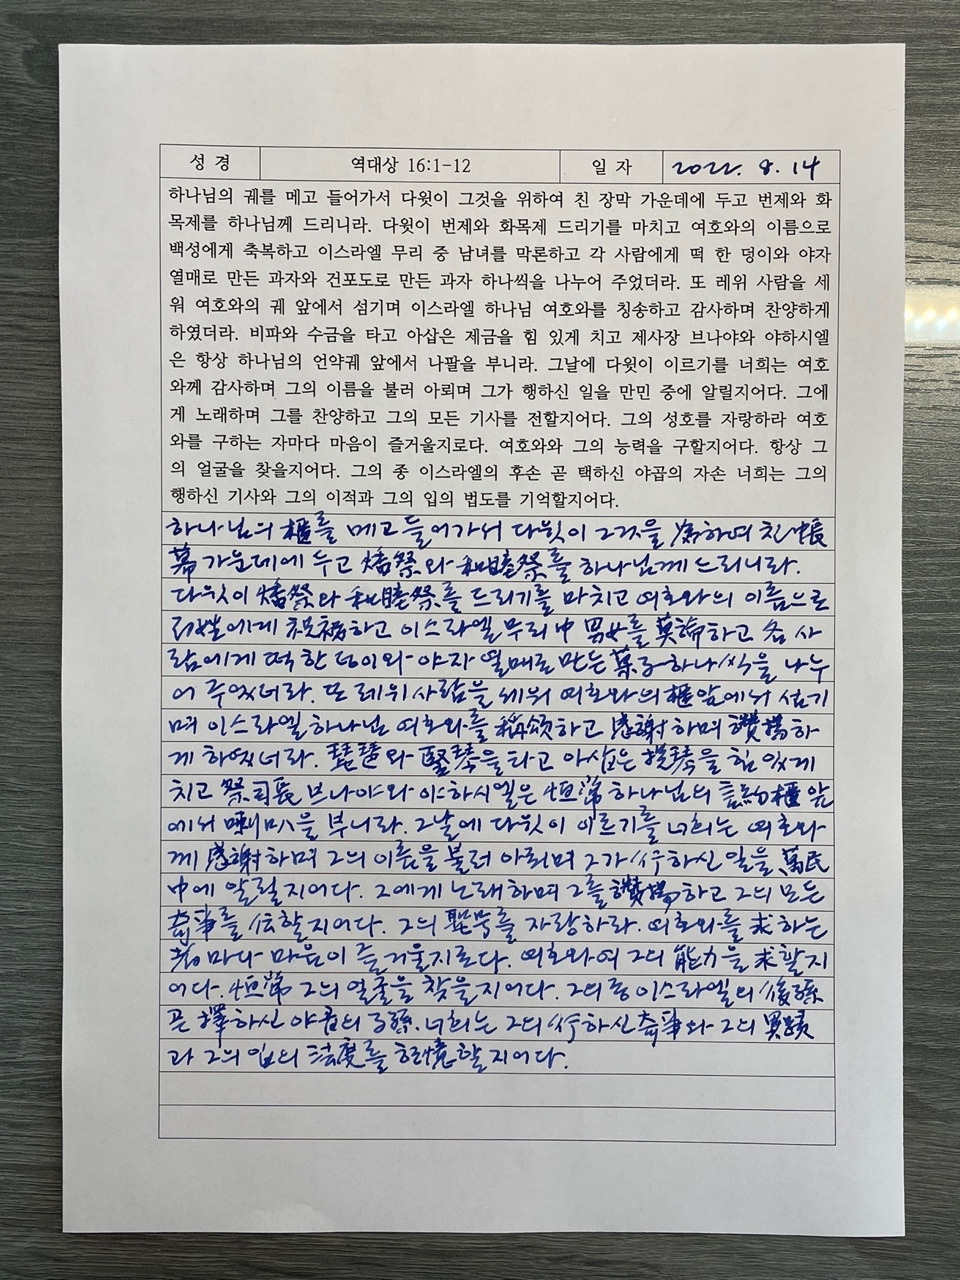 성 경 역대상 16:1-12 일 자 2022. 8. 14
하나님의 궤를 메고 들어가서 다윗이 그것을 위하여 친 장막 가운데에 두고 번제와 화
목제를 하나님께 드리니라. 다윗이 번제와 화목제 드리기를 마치고 여호와의 이름으로
백성에게 축복하고 이스라엘 무리 중 남녀를 막론하고 각 사람에게 떡 한 덩이와 야자
열매로 만든 과자와 건포도로 만든 과자 하나씩을 나누어 주었더라. 또 레위 사람을 세
워 여호와의 궤 앞에서 섬기며 이스라엘 하나님 여호와를 칭송하고 감사하며 찬양하게
하였더라. 비파와 수금을 타고 아삽은 제금을 힘 있게 치고 제사장 브나야와 야하시엘
은 항상 하나님의 언약궤 앞에서 나팔을 부니라. 그날에 다윗이 이르기를 너희는 여호
와께 감사하며 그의 이름을 불러 아뢰며 그가 행하신 일을 만민 중에 알릴지어다. 그에
게 노래하며 그를 찬양하고 그의 모든 기사를 전할지어다. 그의 성호를 자랑하라 여호
와를 구하는 자마다 마음이 즐거울지로다. 여호와와 그의 능력을 구할지어다. 항상 그
의 얼굴을 찾을지어다. 그의 종 이스라엘의 후손 곧 택하신 야곱의 자손 너희는 그의
행하신 기사와 그의 이적과 그의 입의 법도를 기억할지어다.
하나님의 櫃를 메고 들어가서 다윗이 그것을 為하여 친 帳
幕 가운데에 두고 燔祭와 和睦祭를 하나님께 드리니라.
다윗이 燔祭와 和睦祭를 드리기를 마치고 여호와의 이름으로
百姓에게 祝福하고 이스라엘 무리 中 男女를 莫論하고 各 사
람에게 떡 한 덩이와 야자 열매로 만든 菓子 하나씩을 나누
어 주었더라. 또 레위 사람을 세워 여호와의 櫃 앞에서 섬기
며 이스라엘 하나님 여호와를 稱頌하고 感謝하며 讚揚하
게 하였더라. 琵琶와 을 타고 아삽은 을 힘 있게
치고 祭司長 브나야와 야하시엘은 恒常 하나님의 言約櫃 앞
에서 喇叭을 부니라. 그날에 다윗이 이르기를 너희는 여호와
께 感謝하며 그의 이름을 불러 아뢰며 그가 行하신 일을 萬民
中에 알릴지어다. 그에게 노래하며 그를 讚揚하고 그의 모든
奇事를 伝할지어다. 그의 聖号를 자랑하라. 여호와를 求하는
者마다 마음이 즐거울지로다. 여호와여 그의 能力을 求할지
어다. 恒常 그의 얼굴을 찾을지어다. 그의 종 이스라엘의 後孫
곧 擇하신 야곱의 子孫. 너희는 그의 行하신 奇事와 그의 異蹟
과 그의 입의 法度를 記憶할지어다.